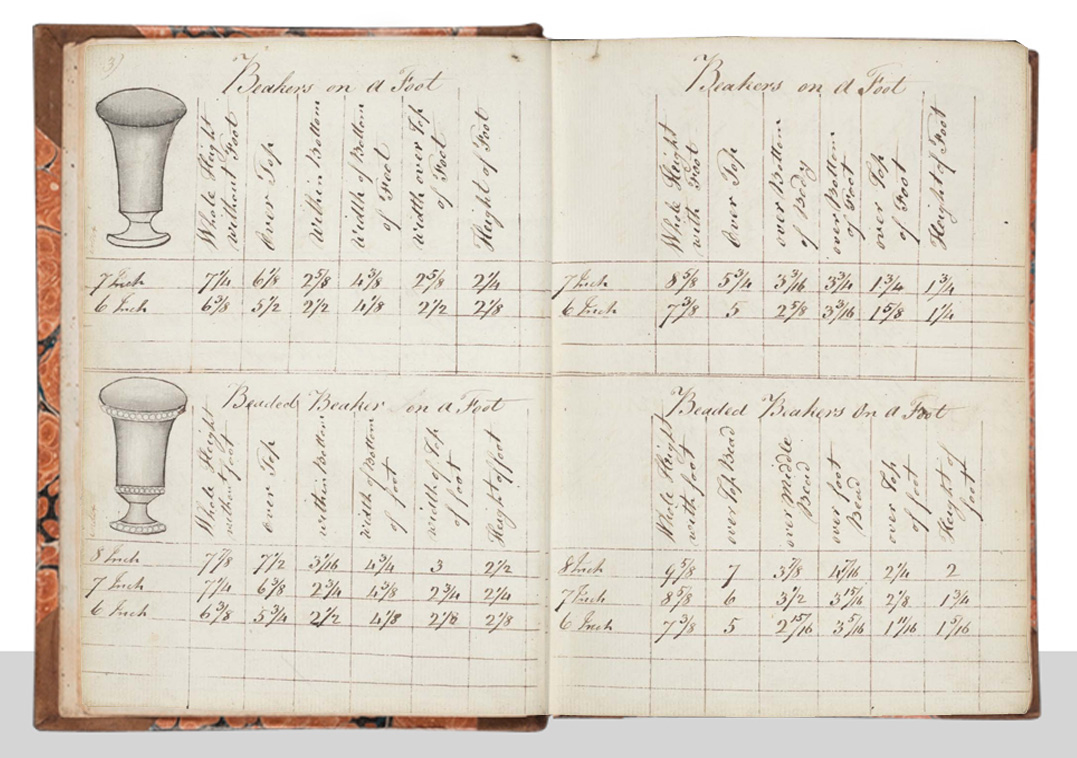 3)
Beakers on a Foot
Whole Height without Foot
Over Top
Within Bottom
Width of Bottom of Foot
Width over Top of Foot
Height of Foot
7 Inch 7 1/4 6 1/8 2 5/8 4 3/8 2 5/8 2 1/4
6 Inch 6 3/8 5 1/2 2 1/2 4 1/8 2 1/2 2 1/8
Beaded Beaker on a Foot
Whole Height without foot
Over Top
within Bottom
width of Bottom of foot
width of Top of foot
Height of foot
8 Inch 7 7/8 7 1/2 3 1/16 4 3/4 3 2 1/2
7 Inch 7 1/4 6 3/8 2 3/4 4 3/8 2 3/4 2 1/4
6 Inch 6 3/8 5 3/4 2 1/2 4 1/8 2 1/8 2 1/8
Beakers on a Foot
Whole Height with Foot
Over Top
over Bottom of Body
over Bottom of Foot
over Top of Foot
Height of Foot
7 Inch 8 5/8 5 3/4 3 3/16 3 3/4 1 3/4 1 3/4
6 Inch 7 3/8 5 2 5/8 3 3/16 1 5/8 1 1/4
Beaded Beakers On a Foot
Whole Height with foot
over Top Bead
over Middle Bead
over foot Bead
over Top of foot
Height of foot
8 Inch 9 5/8 7 3 7/8 4 7/16 2 1/4 2
7 Inch 8 5/8 6 3 1/2 3 15/16 2 1/8 1 3/4
6 Inch 7 3/8 5 2 15/16 3 5/16 1 11/16 1 5/16